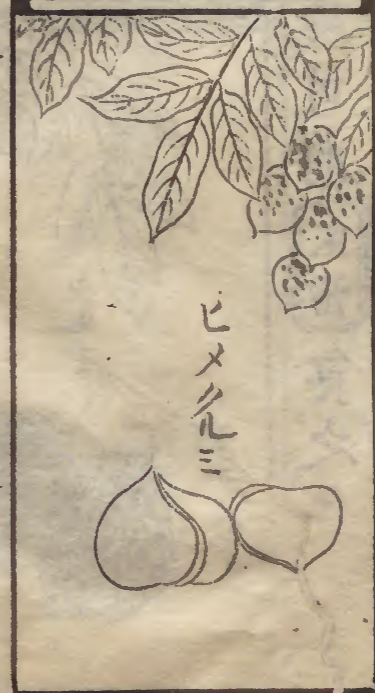 ヒメクルミ